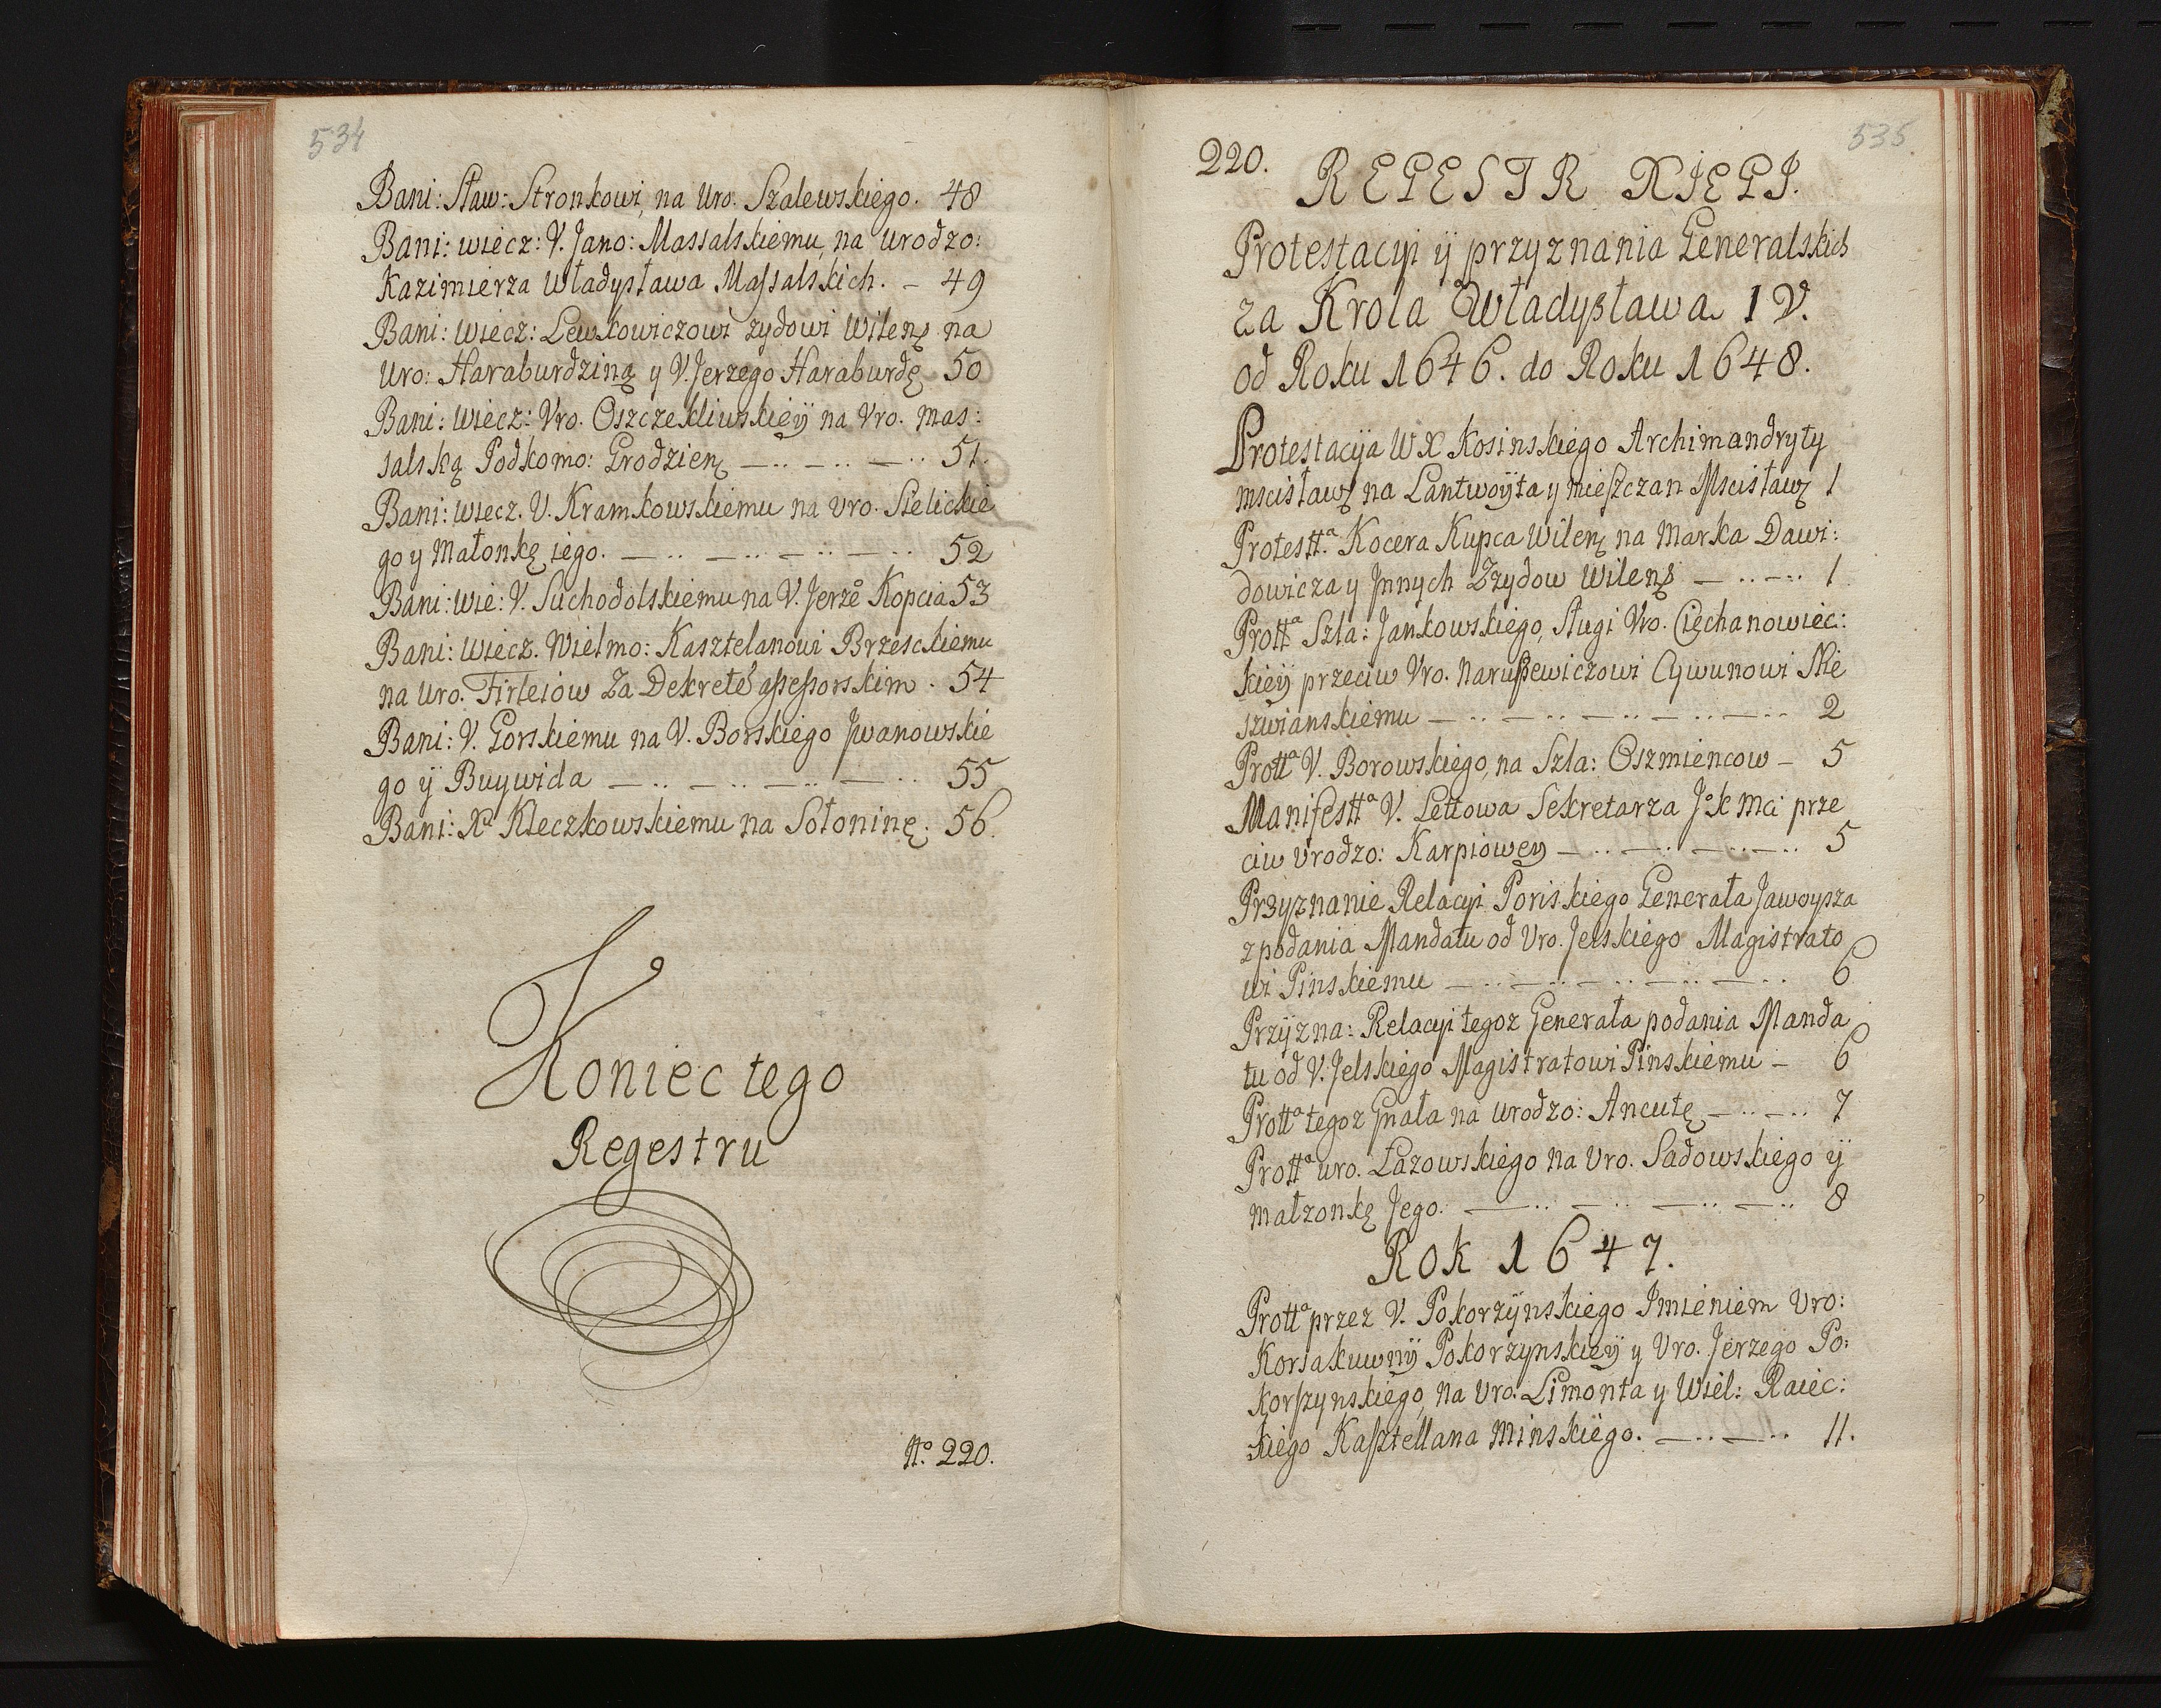 534
Bani: Sław: Stronkowi na Uro. Szalewskiego. 48
Bani: wiecz: V. Jano: Massalskiemu, na Urodzo:
Kazimierza Władysława Massalskich. – 49
Bani: Wiecz: Lewkowiczowi zydowi Wilenſ na
Uro: Haraburdziną y V. Jerzego Haraburdę 50
Bani: Wiecz: Vro. Oszczekliwskieÿ na Vro. Mas:
salską Podkomo: Grodzienſ —..—..—.. 51.
Bani: Wiecz. V. Kramkowskiemu na Vro. Sielickie
go y Małonkę iego. —..—..—..—.. 52
Bani: Wie: V. Suchodolskiemu na V. Jerzº Kopcia 53
Bani: Wiecz. Wielmo: Kasztelanowi Brzesckiemu
na Uro. Firleiow Za Dekretē assessorskim. 54
Bani: V. Gorskiemu na V. Borskiego Jwanowskie
go ÿ Buywida —..—..—..—.. 55
Bani: Xª Kleczkowskiemu na Sołoninę. 56.
Koniec tego
Regestru
Nº. 220.
535.
220. REGESTR XIĘGI.
Protestacyi ÿ przyznania Generalskich
za Krola Władysława IV.
od Roku 1646. do Roku 1648.
Protestacÿa WX Kosinskiego Archimandryty
mscisławſ na Lantwoÿta y mieszczan Mscisławſ 1
Protestt.ª Kocera Kupca Wilenſ na Marka Dawi:
dowicza y Jnnych Zzydow Wilenſ —..—.. 1
Prottª Szla: Jankowskiego, Sługi Vro. Ciechanowiec:
kieÿ przeciw Vro. Naruszewiczowi Cywunowi Nie
szwianskiemu —..—..—..—..—.. 2
Prottª V. Borowskiego, na Szla: Oszmiencow – 5
Manifesttª V. Lettowa Sekretarza Jº K Mci prze
ciw Vrodzo: Karpiowey —..—..—..—.. 5
Przyznanie Relacyi Poriskiego Generała Jawoysza
z podania Mandatu od Vro. Jelskiego Magistrato
wi Pinskiemu —..—..—..—..—.. 6
Przÿzna: Relacyi tegoz Generała podania Manda
tu od V. Jelskiego Magistratowi Pinskiemu – 6
Prottª tegoz Gnała na Urodzo: Ancutę —..—.. 7
Prottª Uro. Łazowskiego na Vro. Sadowskiego ÿ
małzonkę Jego. —..—..—..—.. 8
Rok 1647.
Prottª przez V. Pokorzÿnskiego Jmieniem Vro:
Korsakuwnÿ Pokorzynskieÿ y Vro. Jerzego Po:
korszynskiego, na Vro. Limonta y Wiel: Raiec:
kiego Kasztellana Minskiego. —..—.. 11.